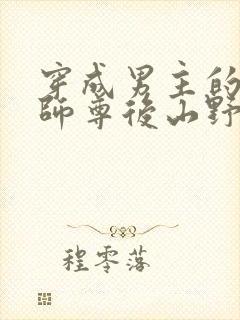 穿成男主的
師尊後山野
程零落